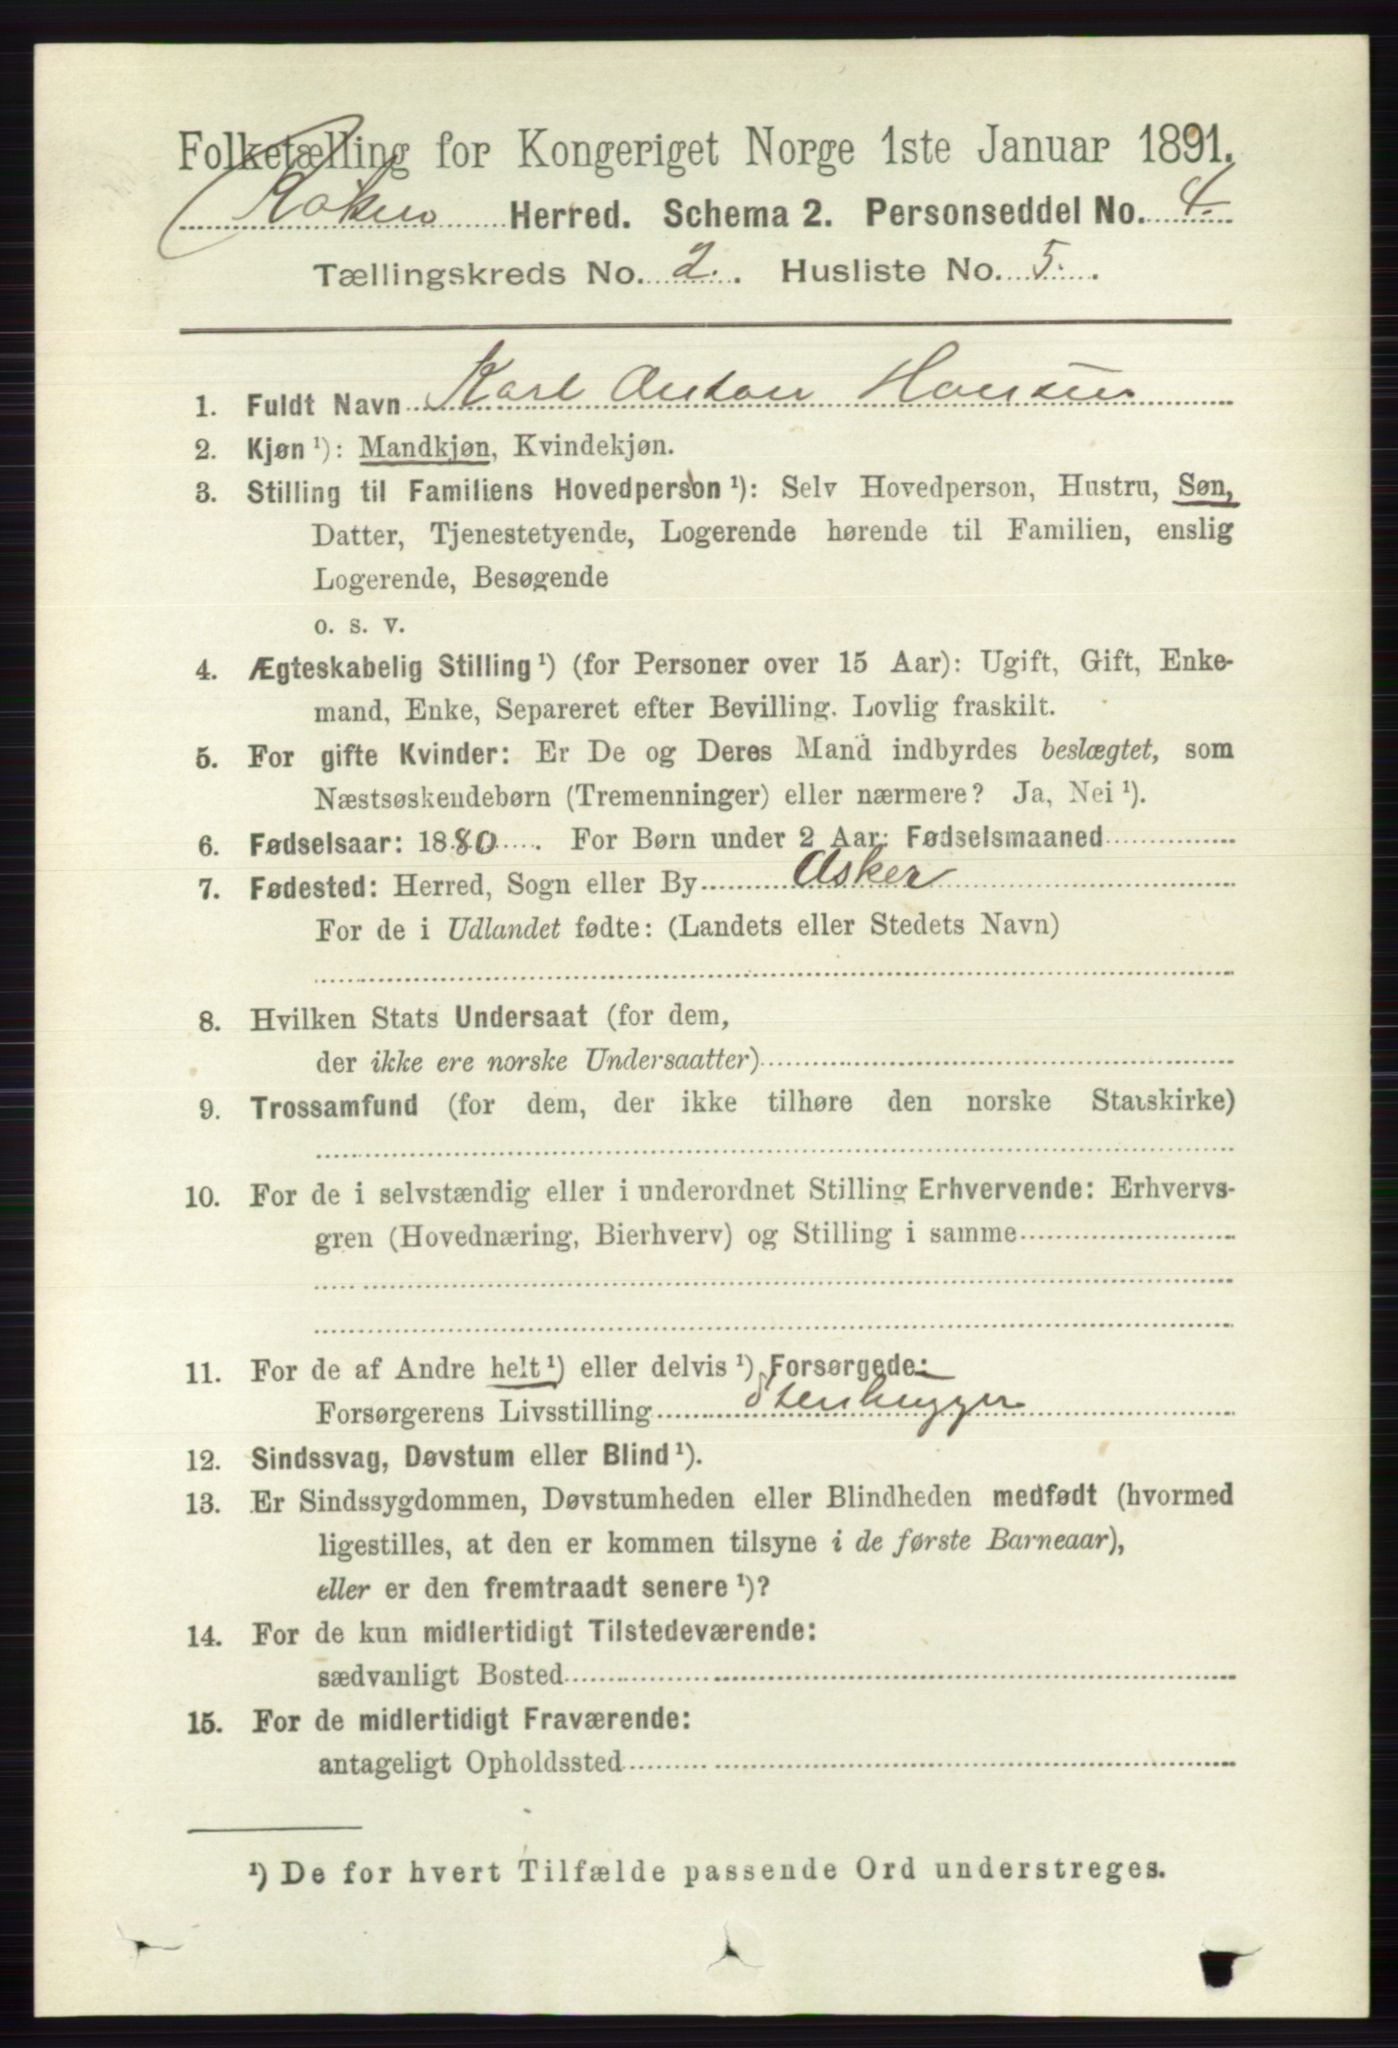 Folketælling for Kongeriget Norge 1ste Januar 1891.
Røken Herred. Schema 2. Personseddel No. 4.
Tællingskreds No. 2. Husliste No. 5.
1. Fuldt Navn Karl Anton Hansen
2. Kjøn ¹): Mandkjøn, Kvindekjøn.
3. Stilling til Familiens Hovedperson ¹): Selv Hovedperson, Hustru, Søn,
Datter, Tjenestetyende, Logerende hørende til Familien, enslig
Logerende, Besøgende
o. s. v.
4. Ægteskabelig Stilling ¹) (for Personer over 15 Aar): Ugift, Gift, Enke-
mand, Enke, Separeret efter Bevilling. Lovlig fraskilt.
5. For gifte Kvinder: Er De og Deres Mand indbyrdes beslægtet, som
Næstsøskendebørn (Tremenninger) eller nærmere? Ja, Nei ¹).
6. Fødselsaar: 1880. For Børn under 2 Aar: Fødselsmaaned
7. Fødested: Herred, Sogn eller By Asker
For de i Udlandet fødte: (Landets eller Stedets Navn)
8. Hvilken Stats Undersaat (for dem,
der ikke ere norske Undersaatter)
9. Trossamfund (for dem, der ikke tilhøre den norske Statskirke)
10. For de i selvstændig eller i underordnet Stilling Erhvervende: Erhvervs-
gren (Hovednæring, Bierhverv) og Stilling i samme
11. For de af Andre helt ¹) eller delvis ¹) Forsørgede:
Forsørgerens Livsstilling Stenhugger
12. Sindssvag, Døvstum eller Blind ¹).
13. Er Sindssygdommen, Døvstumheden eller Blindheden medfødt (hvormed
ligestilles, at den er kommen tilsyne i de første Barneaar),
eller er den fremtraadt senere ¹)?
14. For de kun midlertidigt Tilstedeværende:
sædvanligt Bosted
15. For de midlertidigt Fraværende:
antageligt Opholdssted
¹) De for hvert Tilfælde passende Ord understreges.